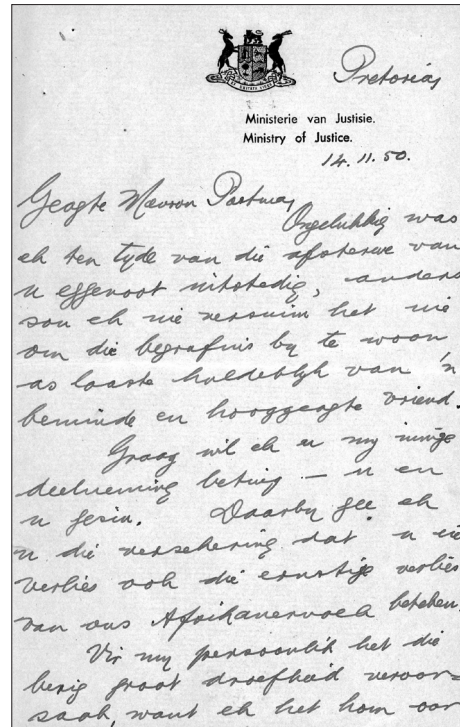 Pretoria,
Ministerie van Justisie.
Ministry of Justice.
14.11.50.
Geagte Mevrou Postma,
Ongelukkig was
ek ten tyde van die afsterwe van
u eggenoot uitstedig, anders
sou ek nie versuim het nie
om die begrafnis by te woon
as laaste huldeblyk van 'n
beminde en hooggeagte vriend.
Graag wil ek u my innige
deelneming betuig – u en
u gesin. Daarby gee ek
u die versekering dat u eie
verlies ook die ernstige verlies
van ons Afrikanervolk beteken.
Vir my persoonlik het die
berig groot droefheid veroor=
saak, want ek het hom oor